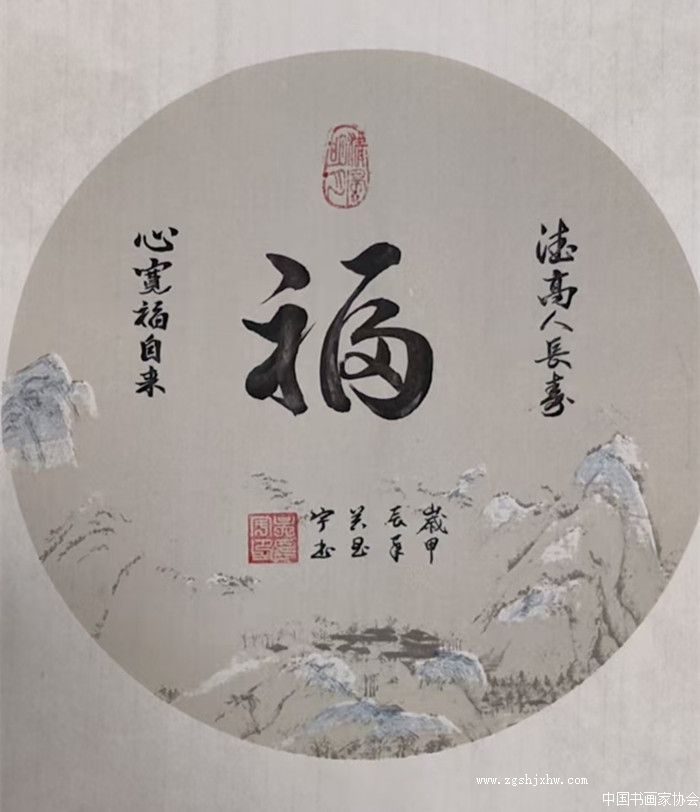 德高人長寿
福
心寬福自来
歲甲
辰年
宁书
www.zgshjxhw.com
中国书画家协会